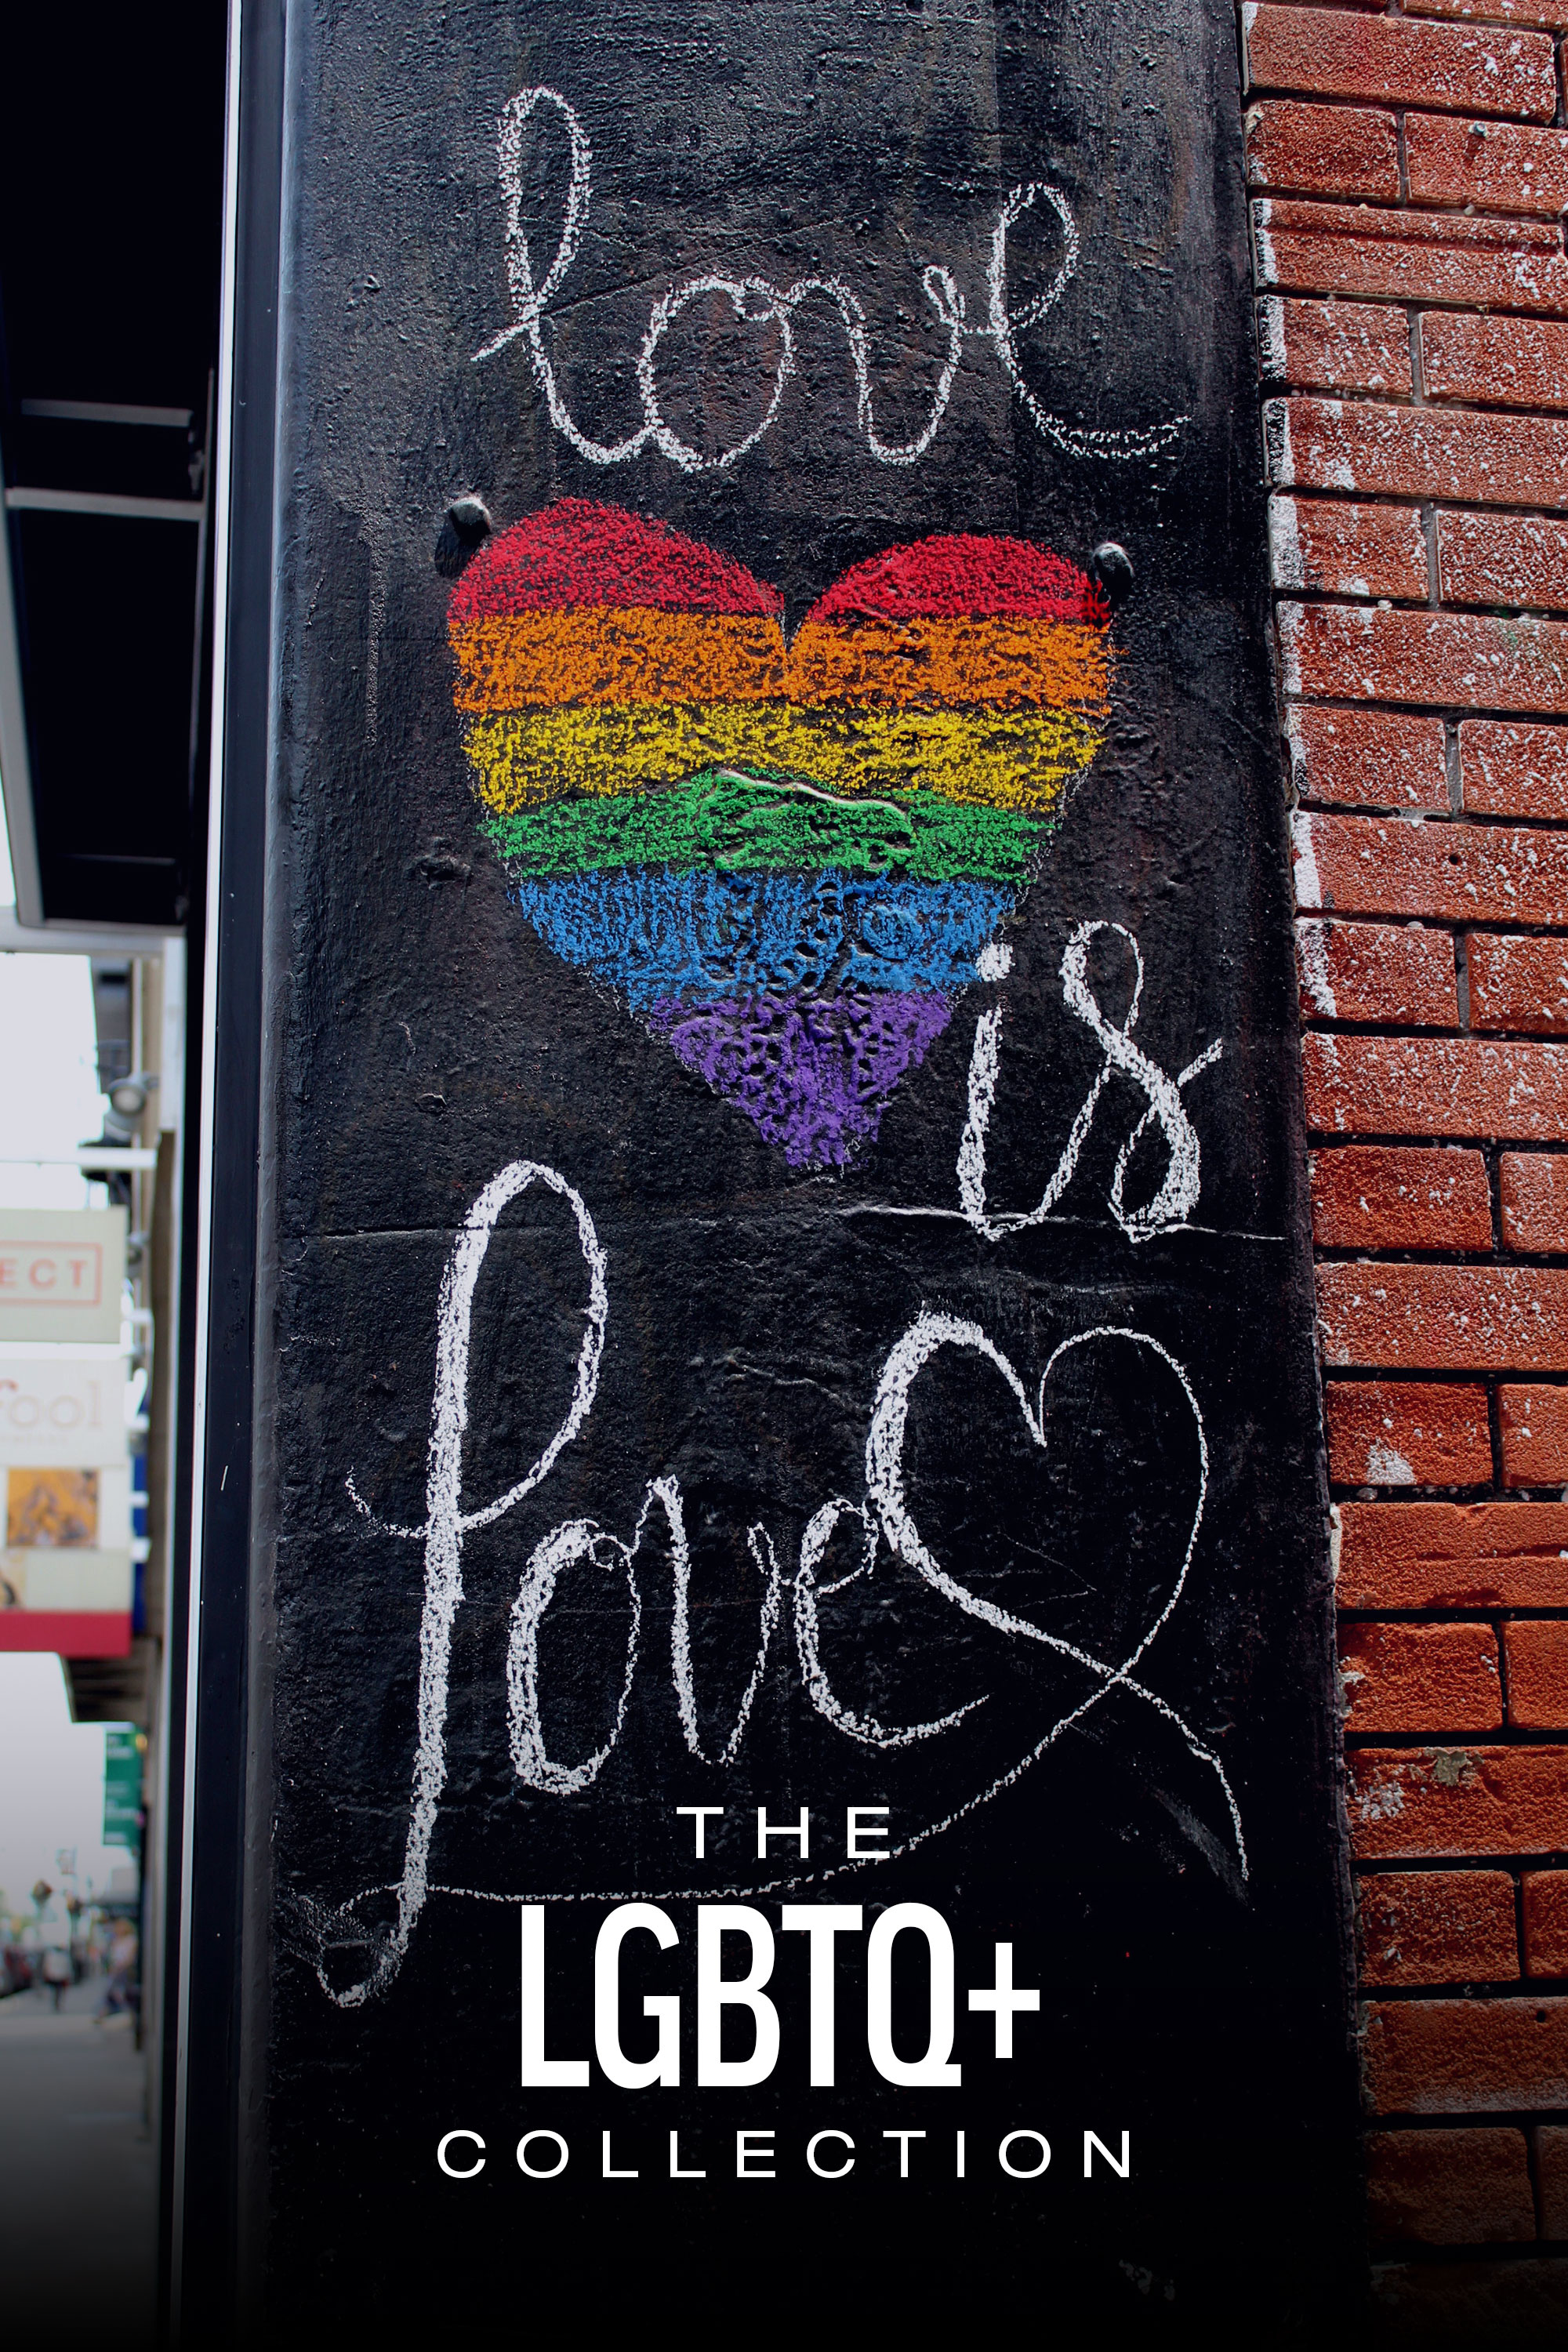 love
is
love
ECT
THE
LGBTQ+
COLLECTION